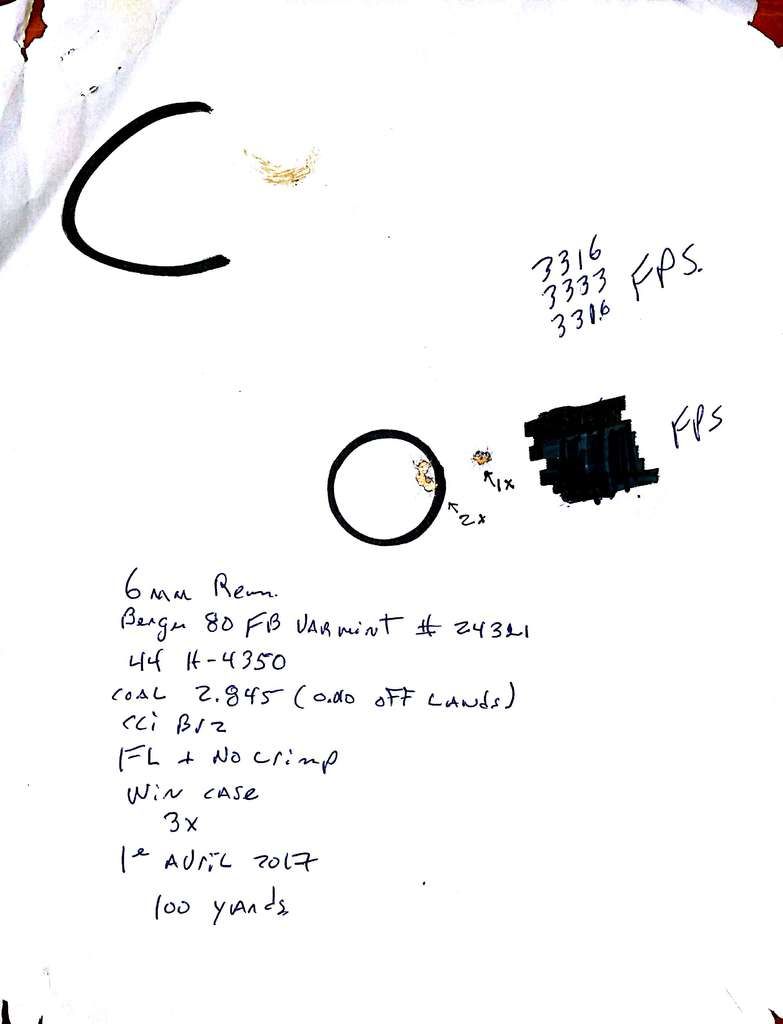 3316
3333 FPS.
3316
FPS
1x
2x
6mm Rem.
Berger 80 FB VARMINT # 24321
44 H-4350
COAL 2.845 (0.00 OFF LANDS)
CCI BR2
FL + No Crimp
WIN CASE
3x
1e AVRIL 2017
100 YARDS